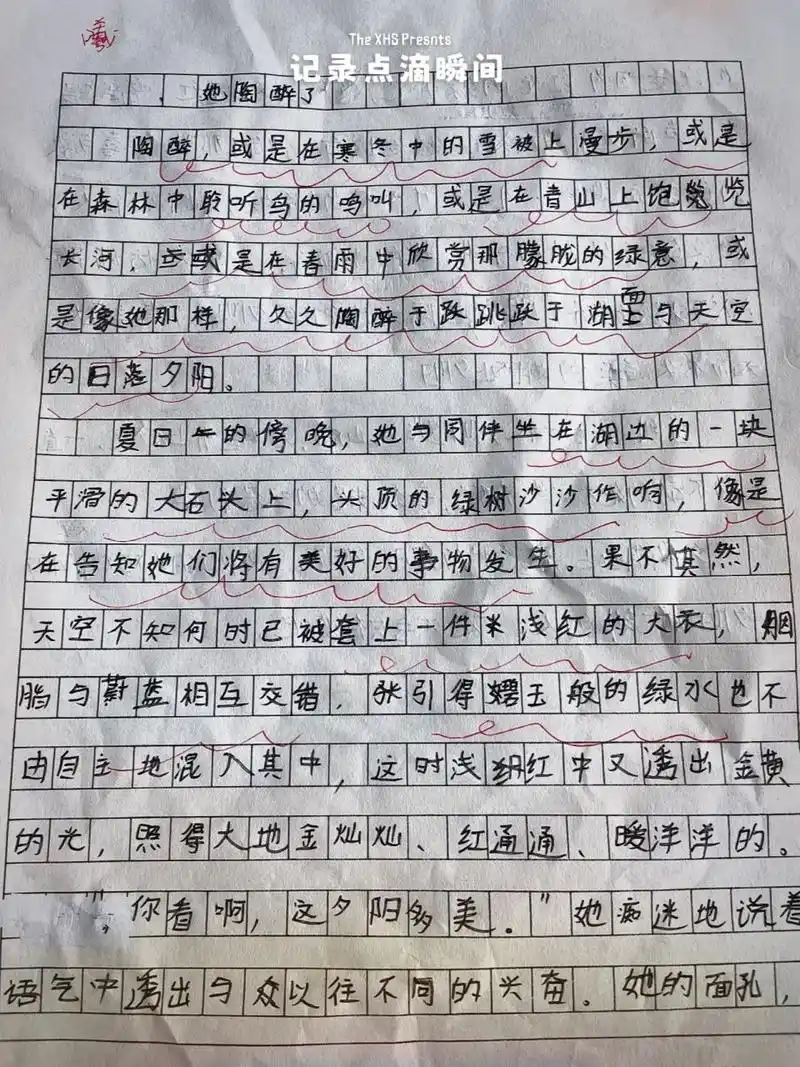 The XHS Presnts
记录点滴瞬间
她陶醉了
陶醉，或是在寒冬中的雪被上漫步，或是
在森林中聆听鸟的鸣叫，或是在青山上饱览
长河，或是在春雨中欣赏那朦胧的绿意，或
是像她那样，久久陶醉于跃跳跃于湖面与天空
的日落夕阳。
夏日的傍晚，她与同伴坐在湖边的一块
平滑的大石头上，头顶的绿树沙沙作响，像是
在告知她们将有美好的事物发生。果不其然，
天空不知何时已被套上一件浅红的大衣，胭
脂与蔚蓝相互交错，张引得碧玉般的绿水也不
由自主地混入其中，这时浅红中又透出金黄
的光，照得大地金灿灿、红通通、暖洋洋的。
“你看啊，这夕阳多美。”她痴迷地说着
语气中透出与众以往不同的兴奋。她的面孔，